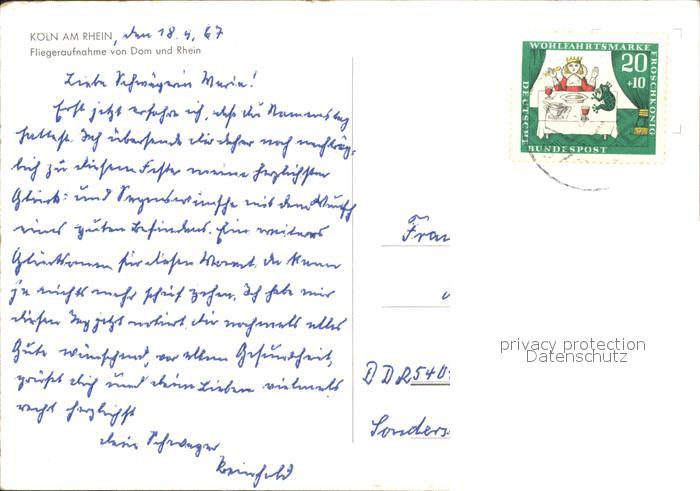 KÖLN AM RHEIN, den 18.4.67
Fliegeraufnahme von Dom und Rhein
Liebe Schwägerin Maria!
Erst jetzt erfahre ich, daß du Namenstag
hattest. Ich übersende dir daher noch nachträg-
lich zu diesem Feste meine herzlichsten
Glück- und Segenswünsche mit dem Wunsch
eines guten Befindens. Ein weiteres
für diesen Da kann
ja nichts mehr schief gehen. Ich habe mir
diesen Tag jetzt notiert. Dir nochmals alles
Gute wünschend, vor allem Gesundheit,
grüßt dich und deine Lieben vielmals
recht herzlichst
dein Schwager
Reinhold
WOHLFAHRTSMARKE
20
+10
FROSCHKÖNIG
DEUTSCHE
BUNDESPOST
Frau
privacy protection
Datenschutz
DDR 540
Sonders